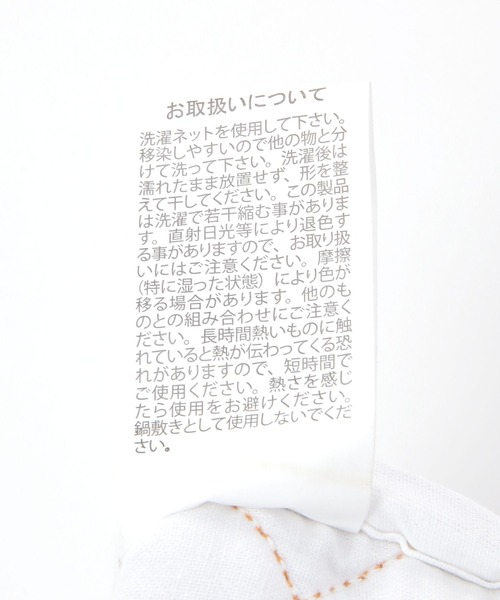 お取扱いについて
洗濯ネットを使用して下さい。
移染しやすいので他の物と分
けて洗って下さい。洗濯後は
濡れたまま放置せず、形を整
えて干してください。この製品
は洗濯で若干縮む事がありま
す。直射日光等により退色す
る事がありますので、お取り扱
いにはご注意ください。摩擦
(特に湿った状態)により色が
移る場合があります。他のも
のとの組み合わせにご注意く
ださい。長時間熱いものに触
れていると熱が伝わってくる恐
れがありますので、短時間で
ご使用ください。熱さを感じ
たら使用をお避けください。
鍋敷きとして使用しないでくだ
さい。